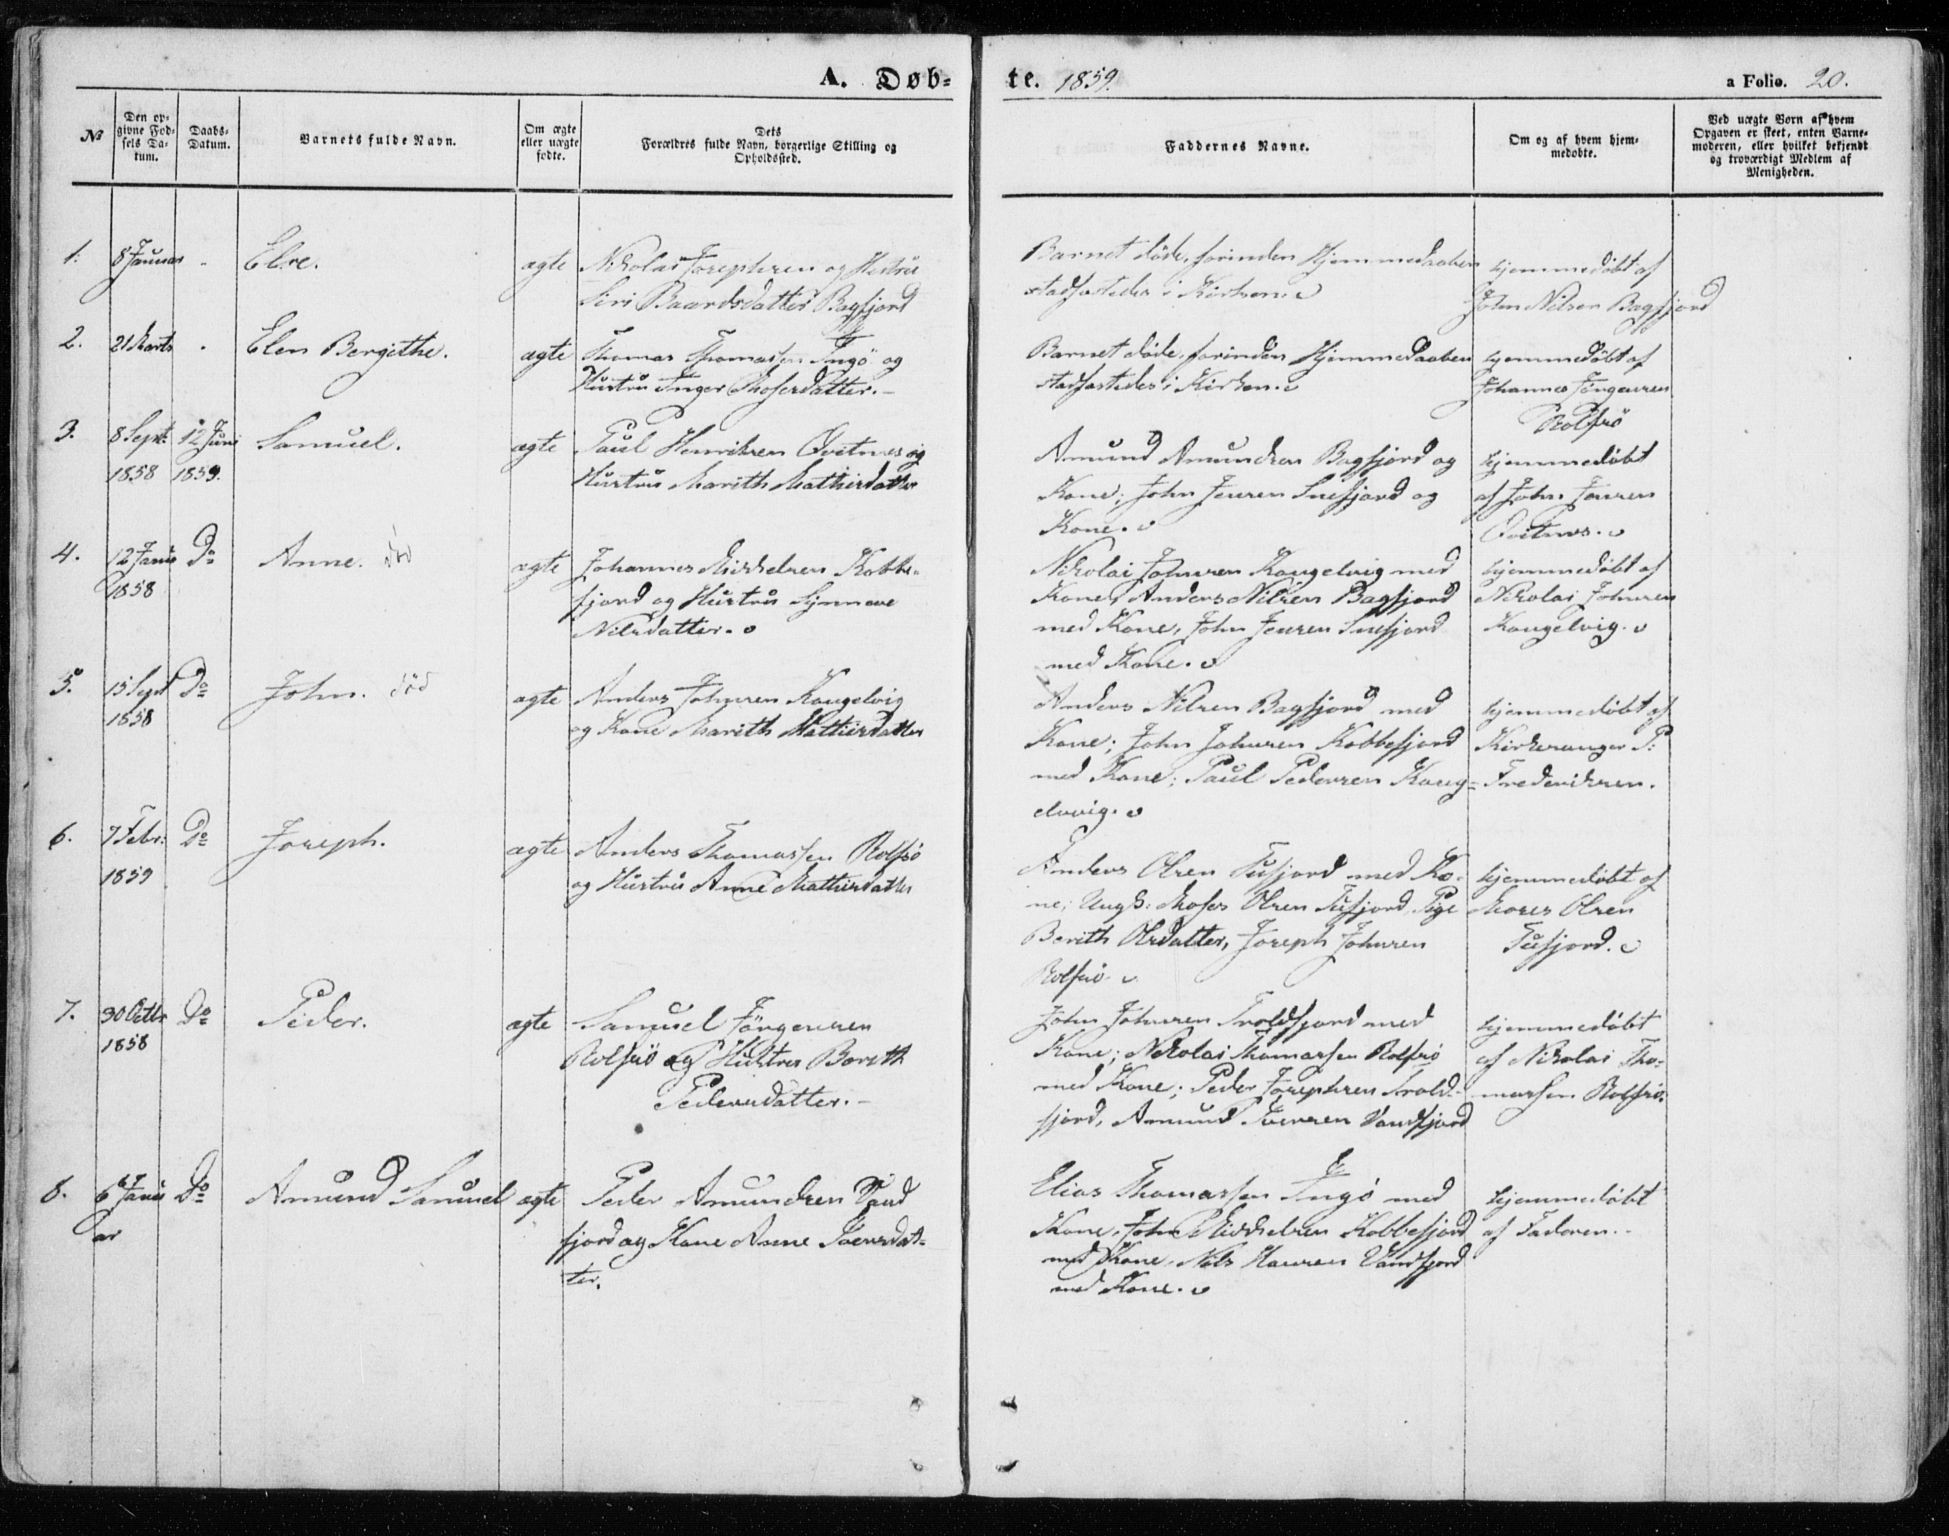 A. Døb-
te. 1859.
a Folio. 20.
№
Den op-
givne Fød-
sels Da-
tum.
Daabs-
Datum.
Barnets fulde Navn.
Om ægte
eller uægte
fødte.
Dets
Forældres fulde Navn, borgerlige Stilling og
Opholdssted.
Faddernes Navne.
Om og af hvem hjem-
medøbte.
Ved uægte Børn af hvem
Opgaven er skeet, enten Barne-
moderen, eller hvilket bekjendt
og troværdigt Medlem af
Menigheden.
1. 8 Januar Else. ægte
Nikolai Josephsen og Hustru
Siri Baardsdatter Bagfjord
Barnet døde, forinden Hjemmedaaben
stadfæstedes i Kirken.
hjemmedøbt af
John Nilsen Bagfjord
2. 21 Marts Elen Bergithe. ægte
Thomas Thomassen Ingø og
Hustru Inger Mosesdatter.
Barnet døde, forinden Hjemmedaaben
stadfæstedes i Kirken.
hjemmedøbt af
Johannes Jørgensen
Rolfsø
3. 8 Sept: 12 Juni Samuel. ægte
1858 1859.
Paul Henriksen Qvitnes og
Hustru Marith Mathisdatter
Amund Amundsen Bagfjord og
Kone; John Jensen Snefjord og
Kone.
hjemmedøbt
af John Jensen
Qvitnes.
4. 12 Janu Do Anne. død ægte
1858
Johannes Mikkelsen Kobbe-
fjord og Hustru Synnove
Nilsdatter.
Nikolai Johnsen Kaugelvig med
Kone, Anders Nilsen Bagfjord
med Kone, John Jensen Snefjord
med Kone.
hjemmedøbt af
Nikolai Johnsen
Kaugelvig.
5. 15 Sept Do John. død ægte
1858
Anders Johnsen Kaugelvig
og Kone Marith Mathisdatter
Anders Nilsen Bagfjord med
Kone; John Johnsen Kobbefjord
med Kone; Paul Pedersen Kaug-
elvig.
hjemmedøbt af
Kirkesanger P:
Frederiksen.
6. 7 Febr: Do Joseph. ægte
1859
Anders Thomassen Rolfsø
og Hustru Anne Mathisdatter
Anders Olsen Tufjord med Ko-
ne; Ungk: Moses Olsen Tufjord, Pige
Berith Olsdatter, Joseph Johnsen
Rolfsø
hjemmedøbt af
Moses Olsen
Tufjord.
7. 30 Octbr Do Peder. ægte
1858
Samuel Jørgensen
Rolfsø og Hustru Berith
Pedersdatter.
John Johnsen Troldfjord med
Kone; Nikolai Thomassen Rolfsø
med Kone; Peder Josephsen Trold-
fjord, Amund Iversen Vandfjord
hjemmedøbt
af Nikolai Tho-
massen Rolfsø.
8. 6 Janu Do Amund Samuel ægte
ar
Peder Amundsen Vand
fjord og Kone Anne Iversdat-
ter.
Elias Thomassen Ingø med
Kone, John Mikkelsen Kobbefjord
med Kone, Nils Hansen Vandfjord
med Kone.
hjemmedøbt
af Faderen.